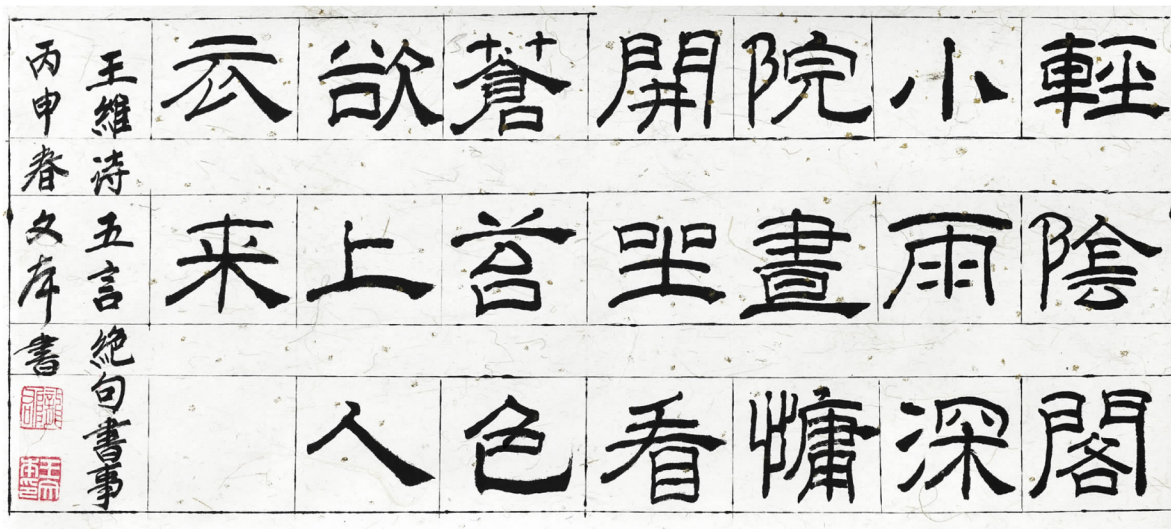 輕陰閣
小雨深
院晝慵
開坐看
蒼苔色
欲上人
衣来
王維诗五言絶句書事
丙申春文書